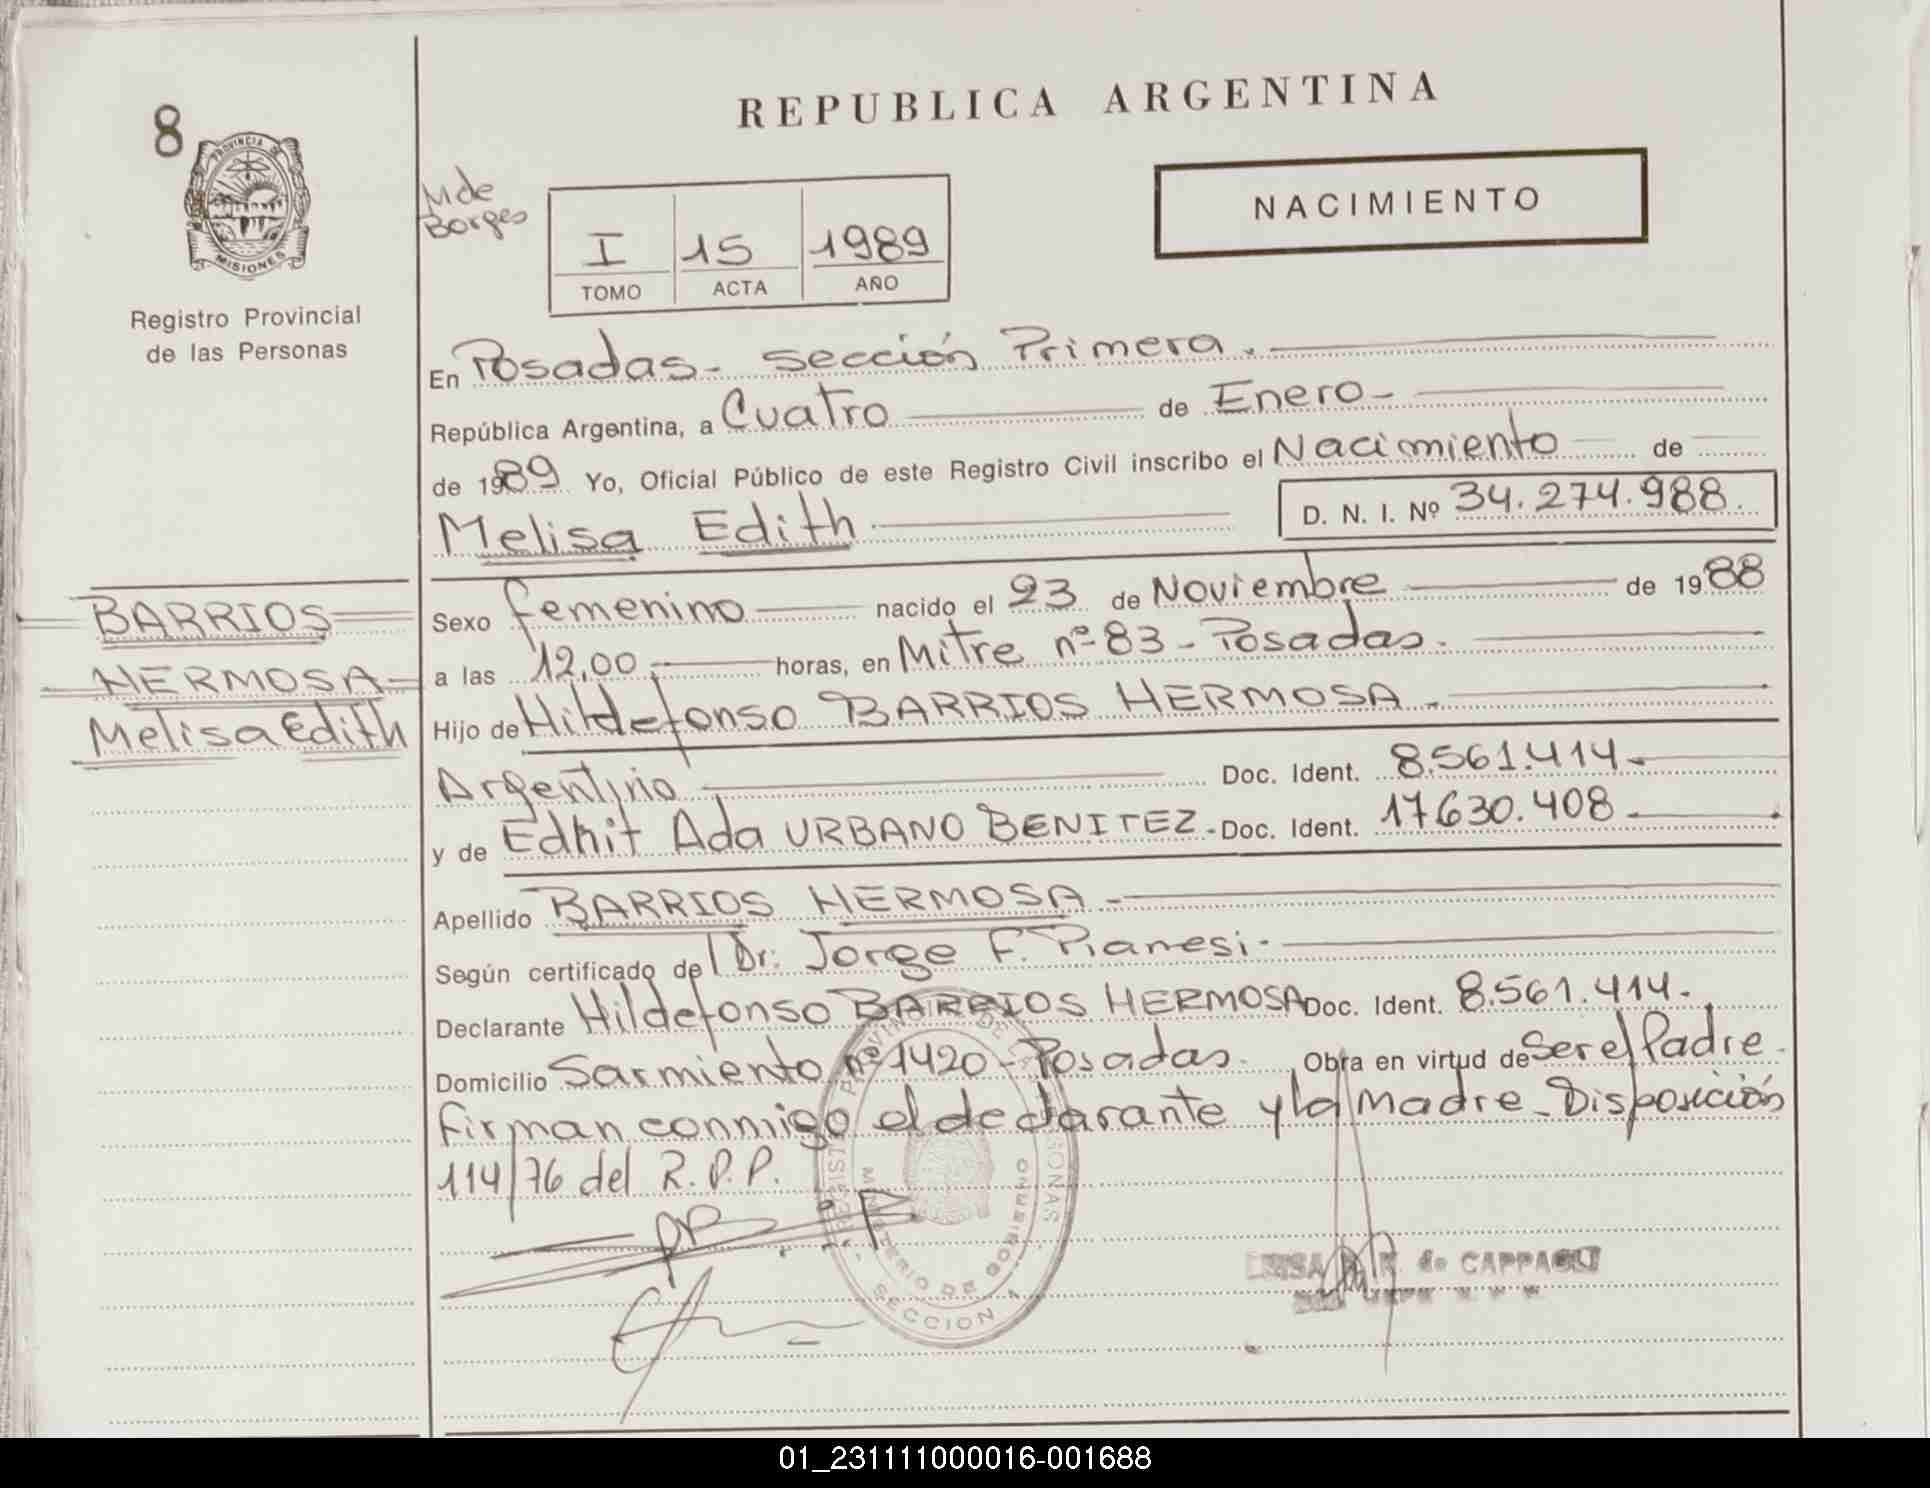 8
PROVINCIA DE
MISIONES
Registro Provincial
de las Personas
REPUBLICA ARGENTINA
M de
Borges
I 15 1989
TOMO ACTA AÑO
NACIMIENTO
En Posadas - Sección Primera.
República Argentina, a Cuatro de Enero -
de 1989 Yo, Oficial Público de este Registro Civil inscribo el Nacimiento de
Melisa Edith
D. N. I. Nº 34.274.988.
BARRIOS
HERMOSA
Melisa Edith
Sexo femenino nacido el 23 de Noviembre de 1988
a las 12,00 horas, en Mitre nº 83 - Posadas.
Hijo de Hildefonso BARRIOS HERMOSA.
Argentino Doc. Ident. 8.561.414-
y de Edhit Ada URBANO BENITEZ. Doc. Ident. 17.630.408
Apellido BARRIOS HERMOSA -
Según certificado del Dr. Jorge F. Pianesi.
Declarante Hildefonso BARRIOS HERMOSA Doc. Ident. 8.561.414.
Domicilio Sarmiento nº 1420 - Posadas. Obra en virtud de Ser el Padre.
firman conmigo el declarante y la Madre - Disposición
114/76 del R.P.P.
MINISTERIO DE GOBIERNO
SECCION 1
de CAPPAGLI
01_231111000016-001688